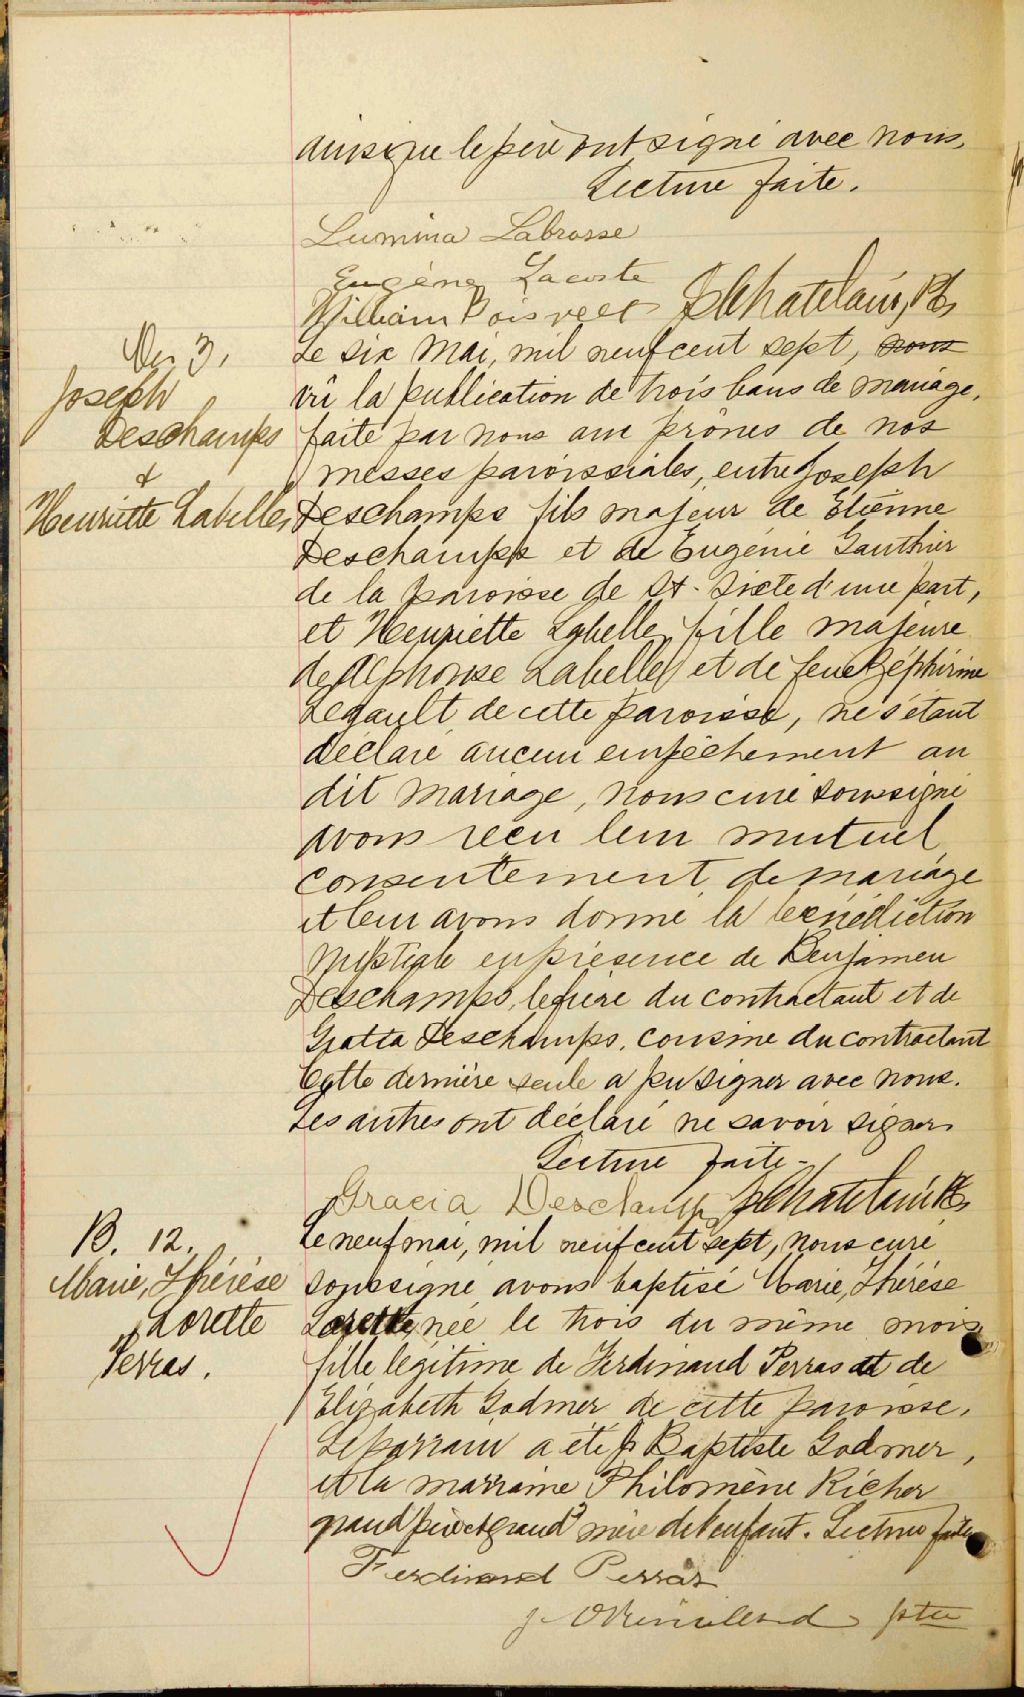 ainsi que le père ont signé avec nous.
Lecture faite.
Lumina Labrosse
Eugène Lacoste
William Boisvert J Chatelain, Ptr
M 3,
Joseph
Deschamps
&
Henriette Labelle,
Le six Mai, mil neuf cent sept, nous
vû la publication de trois bans de mariage,
faite par nous aux prônes de nos
messes paroissiales, entre Joseph
Deschamps fils majeur de Etienne
Deschamps et de Eugénie Gauthier
de la paroisse de St. Sixte d'une part,
et Henriette Labelle, fille majeure
de Alphonse Labelle et de feue Zéphirine
Legault de cette paroisse, ne s'étant
déclaré aucun empêchement au
dit mariage, nous curé soussigné
avons reçu leur mutuel
consentement de mariage
et leur avons donné la bénédiction
nuptiale en présence de Benjamen
Deschamps, le frère du contractant et de
Deschamps, cousine du contractant
Cette dernière seule a pu signer avec nous.
Les autres ont déclaré ne savoir signer
Lecture faite.
Gracia Deschamps J Chatelain Ptr
B. 12.
Marie, Thérèse
Lorette
Perras.
Le neuf mai, mil neuf cent sept, nous curé
soussigné avons baptisé Marie, Thérèse
Lorette née le trois du même mois
fille légitime de Ferdinand Perras et de
Elizabeth Godmer de cette paroisse.
Le parrain a été J. Baptiste Godmer,
et la marraine Philomène Richer
grand'père et grand'mère de l'enfant. Lecture faite
Ferdinand Perras
ptre